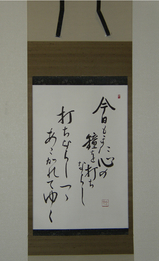 今日もまた心の
鐘を打ち
ならし
打ちならしつゝ
あこがれてゆく